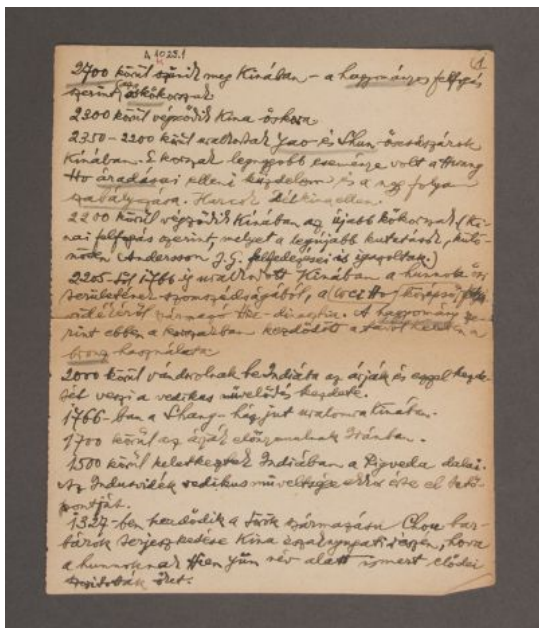 A 1025.!
(1
2700 körül szűnik meg Kinában – a hagyományos felfogás
szerint az őskőkorszak
2300 körül végződik Kina őskora
2350–2200 körül uralkodtak Yao és Shun őscsászárok
Kinában. E korszak legnagyobb eseménye volt a Hwang
Ho áradásai elleni küzdelem és a nagy folyam
szabályozása. Harcok
2200 körül végződik Kinában az újabb kőkorszak (Ki-
nai felfogás szerint, melyet a legújabb kutatások, külö-
nösen Andersson J.G. felfedezései is igazoltak.)
2205-től 1766 ig uralkodott Kinában a hunnok ősi
területének szomszédságából, a (Wei Ho) középső
vidékéről származó dinastia. A hagyomány sze-
rint ebben a korszakban kezdődött a távol keleten a
bronz használata
2000 körül vándorolnak be Indiába az árják és ezzel kezde-
tét veszi a vedikus művelődés kezdete.
1766-ban a Shang-ház jut uralomra Kinában.
1700 körül az árják előnyomulnak Iránban.
1500 körül keletkeztek Indiában a Rigveda dalai.
Az Indusvidék vedikus műveltsége ekkor érte el tető-
pontját.
1327-ben kezdődik a török származású Chou bar-
bárok terjeszkedése Kina északnyugati részén, hova
a hunnoknak Hien yün név alatt ismert elődei
szorították őket.